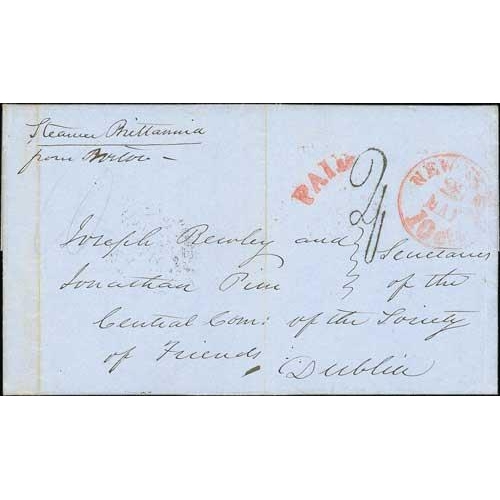 Steamer Brittannia
from Boston –
PAID
2/
NEW
MAY
10
Joseph Bewley and } Secretaries
Jonathan Pim } of the
Central Com: of the Society
of Friends
Dublin